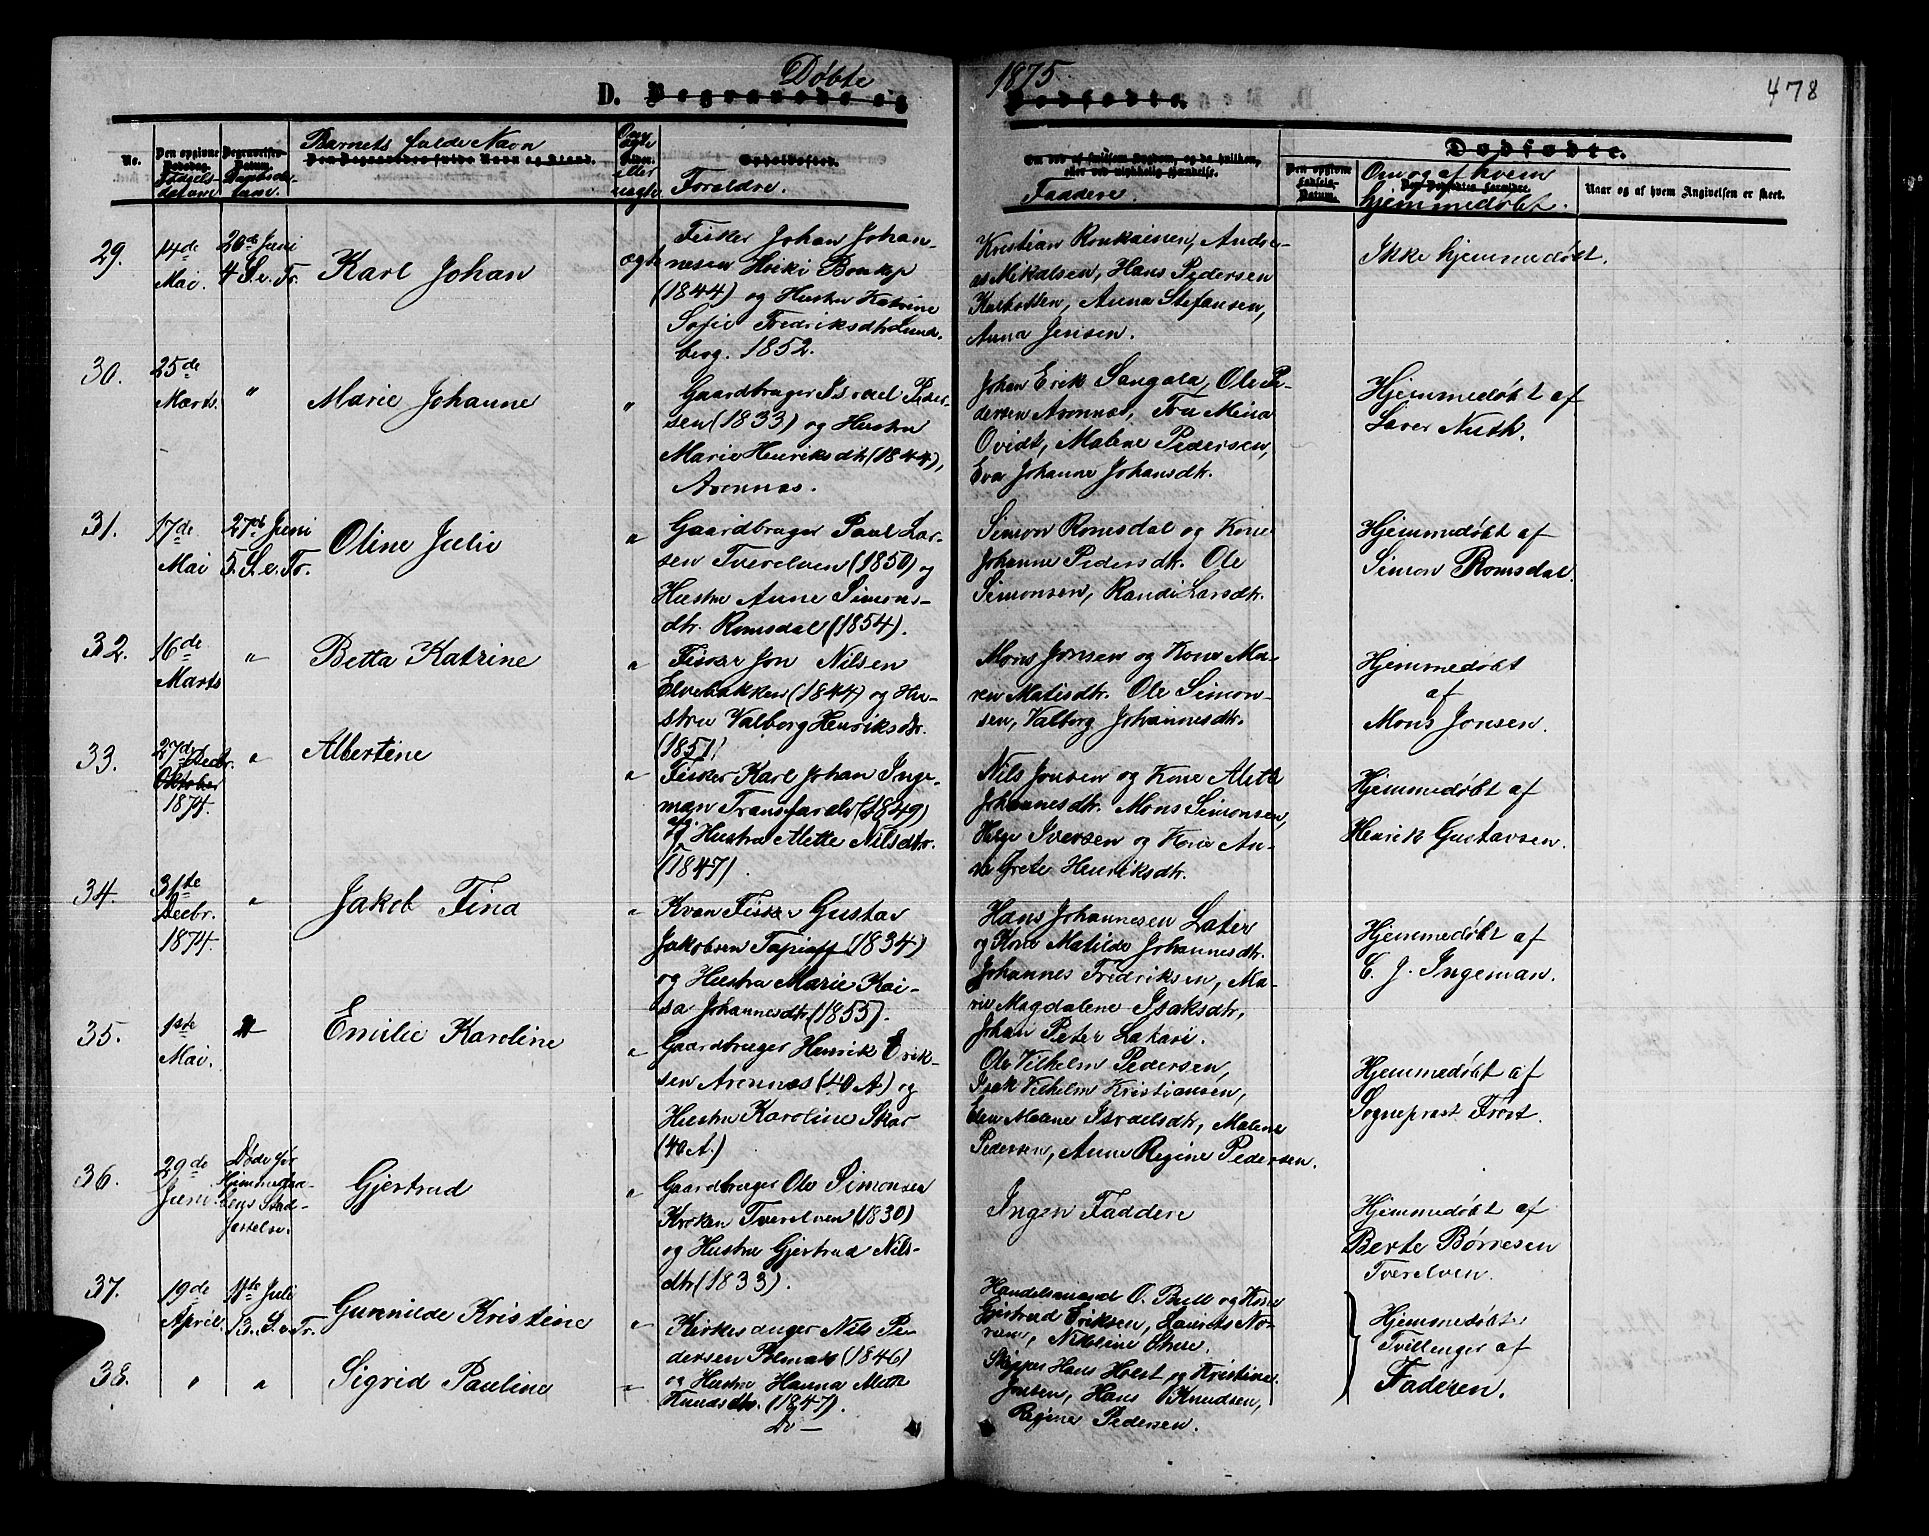 Døbte 1875. 478
D. Begravede og Dødfødte.
No.
Den opgivne Dødsdag.
Fødsels-
datum
Begravelses-
Datum.
Daabsda-
tum.
Barnets fulde Navn
Den Begravedes fulde Navn og Stand.
Om
ægte
eller
uægte
Opholdssted.
Forældre.
Om død af smitsom Sygdom, og da hvilken,
eller ved ulykkelig Hændelse.
Faddere.
Dødfødte.
Den opgivne
Fødsels-
Datum.
Om og af hvem
Den Dødfødtes Forældre.
hjemmedøbt.
Naar og af hvem Angivelsen er skeet.
29.
14de
Mai.
20de Juni
4 S. e. Tr.
Karl Johan
ægte
Fisker Johan Johan-
nesen Heiki
(1844) og Hustru Katrine
Sofie Fredriksdtr Lund-
berg. 1852.
Kristian Ronkainen, Andre-
as Mikalsen, Hans Pedersen
Anna Stefansen,
Anna Jensen.
Ikke hjemmedøbt.
30.
25de
Marts.
"
Marie Johanne
"
Gaardbruger Israel Peder-
sen (1833) og Hustru
Marie Henriksdtr (1844),
Avennæs.
Johan Erik Sangala, Ole Pe-
dersen Avennæs, Fru Mina
Qvidt, Malene Pedersen,
Eva Johanne Johansdtr.
Hjemmedøbt af
Lærer Nuth.
31.
17de
Mai
27de Juni
5. S. e. Tr.
Oline Julie
"
Gaardbruger Paul Lar-
sen Tverelven (1850) og
Hustru Anne Simons-
dtr. Romsdal (1854).
Simon Romsdal og Kone
Johanne Pedersdtr. Ole
Simonsen, Randi Larsdtr.
Hjemmedøbt af
Simon Romsdal.
32.
16de
Marts
"
Betta Katrine
"
Fisker Jon Nilsen
Elvebakken (1844) og Hu-
stru Valborg Henriksdtr.
(1851)
Mons Jonsen og Kone Ma-
ren Matisdtr. Ole Simon-
sen, Valborg Johannesdtr.
Hjemmedøbt
af
Mons Jonsen.
33.
27de Decbr.
Oktober
1874.
"
Albertine
"
Fisker Karl Johan Inge-
man Transfarelv (1849)
og Hustru Mette Nilsdtr.
(1847).
Nils Jonsen og Kone Mette
Johannesdtr. Mons Simonsen,
Helge Iversen og Kone An-
ne Grete Henriksdtr.
Hjemmedøbt af
Henrik Gustavsen.
34.
31te
Decbr.
1874.
"
Jakob Find
"
Kvæn Fisker Gustav
Jakobsen (1834)
og Hustru Marie Kai-
sa Johannesdtr (1855).
Hans Johannesen Later
og Kone Matilde Johannesdtr.
Johannes Fredriksen, Ma-
rie Magdalene Isaksdtr,
Johan Peter Lakari.
Hjemmedøbt af
C. J. Ingeman.
35.
1ste
Mai.
Emilie Karoline
"
Gaardbruger Henrik Erik-
sen Avennæs (40 A) og
Hustru Karoline Skar
(40 A.)
Ole Vilhelm Pedersen,
Isak Vilhelm Kristiansen,
Elen Malene Israelsdtr, Malene
Pedersen, Anne Regine Pedersen.
Hjemmedøbt af
Sogneprest Frost.
36.
29de
Juni.
Døde før
Hjemmedaa-
bens Stad-
fæstelse.
Gjertrud
"
Gaardbruger Ole Simonsen
Kroken Tverelven (1830)
og Hustru Gjertrud Nils-
dtr (1833).
Ingen Faddere
Hjemmedøbt af
Berte Børresen
Tverelven.
37.
19de
April.
11te Juli
13. S. e. Tr.
Gunnilde Kristine
"
Kirkesanger Nils Pe-
dersen Polmak (1846)
og Hustru Hanna Mette
Knudsdtr. (1847).
Handelsmand O. Bull og Kone
Gjertrud Eriksen, Laurits No-
rum, Nikoline
Hjemmedøbte
Tvillinger af
Faderen.
38.
"
"
Sigrid Pauline
"
Do —
Skipper Hans Holst og Kristine
Jonsen, Hans Knudsen,
Regine Pedersen.